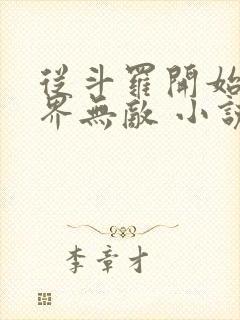 從斗羅開始
界無敵 小說
李章才